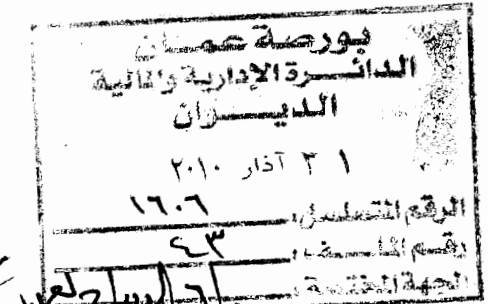 بورصة عمان
الدائرة الإدارية والمالية
الديوان
٣١ آذار ٢٠١٠
الرقم المتسلسل: ١٦٠٦
رقم الملف: ٤٣
الجهة المختصة: